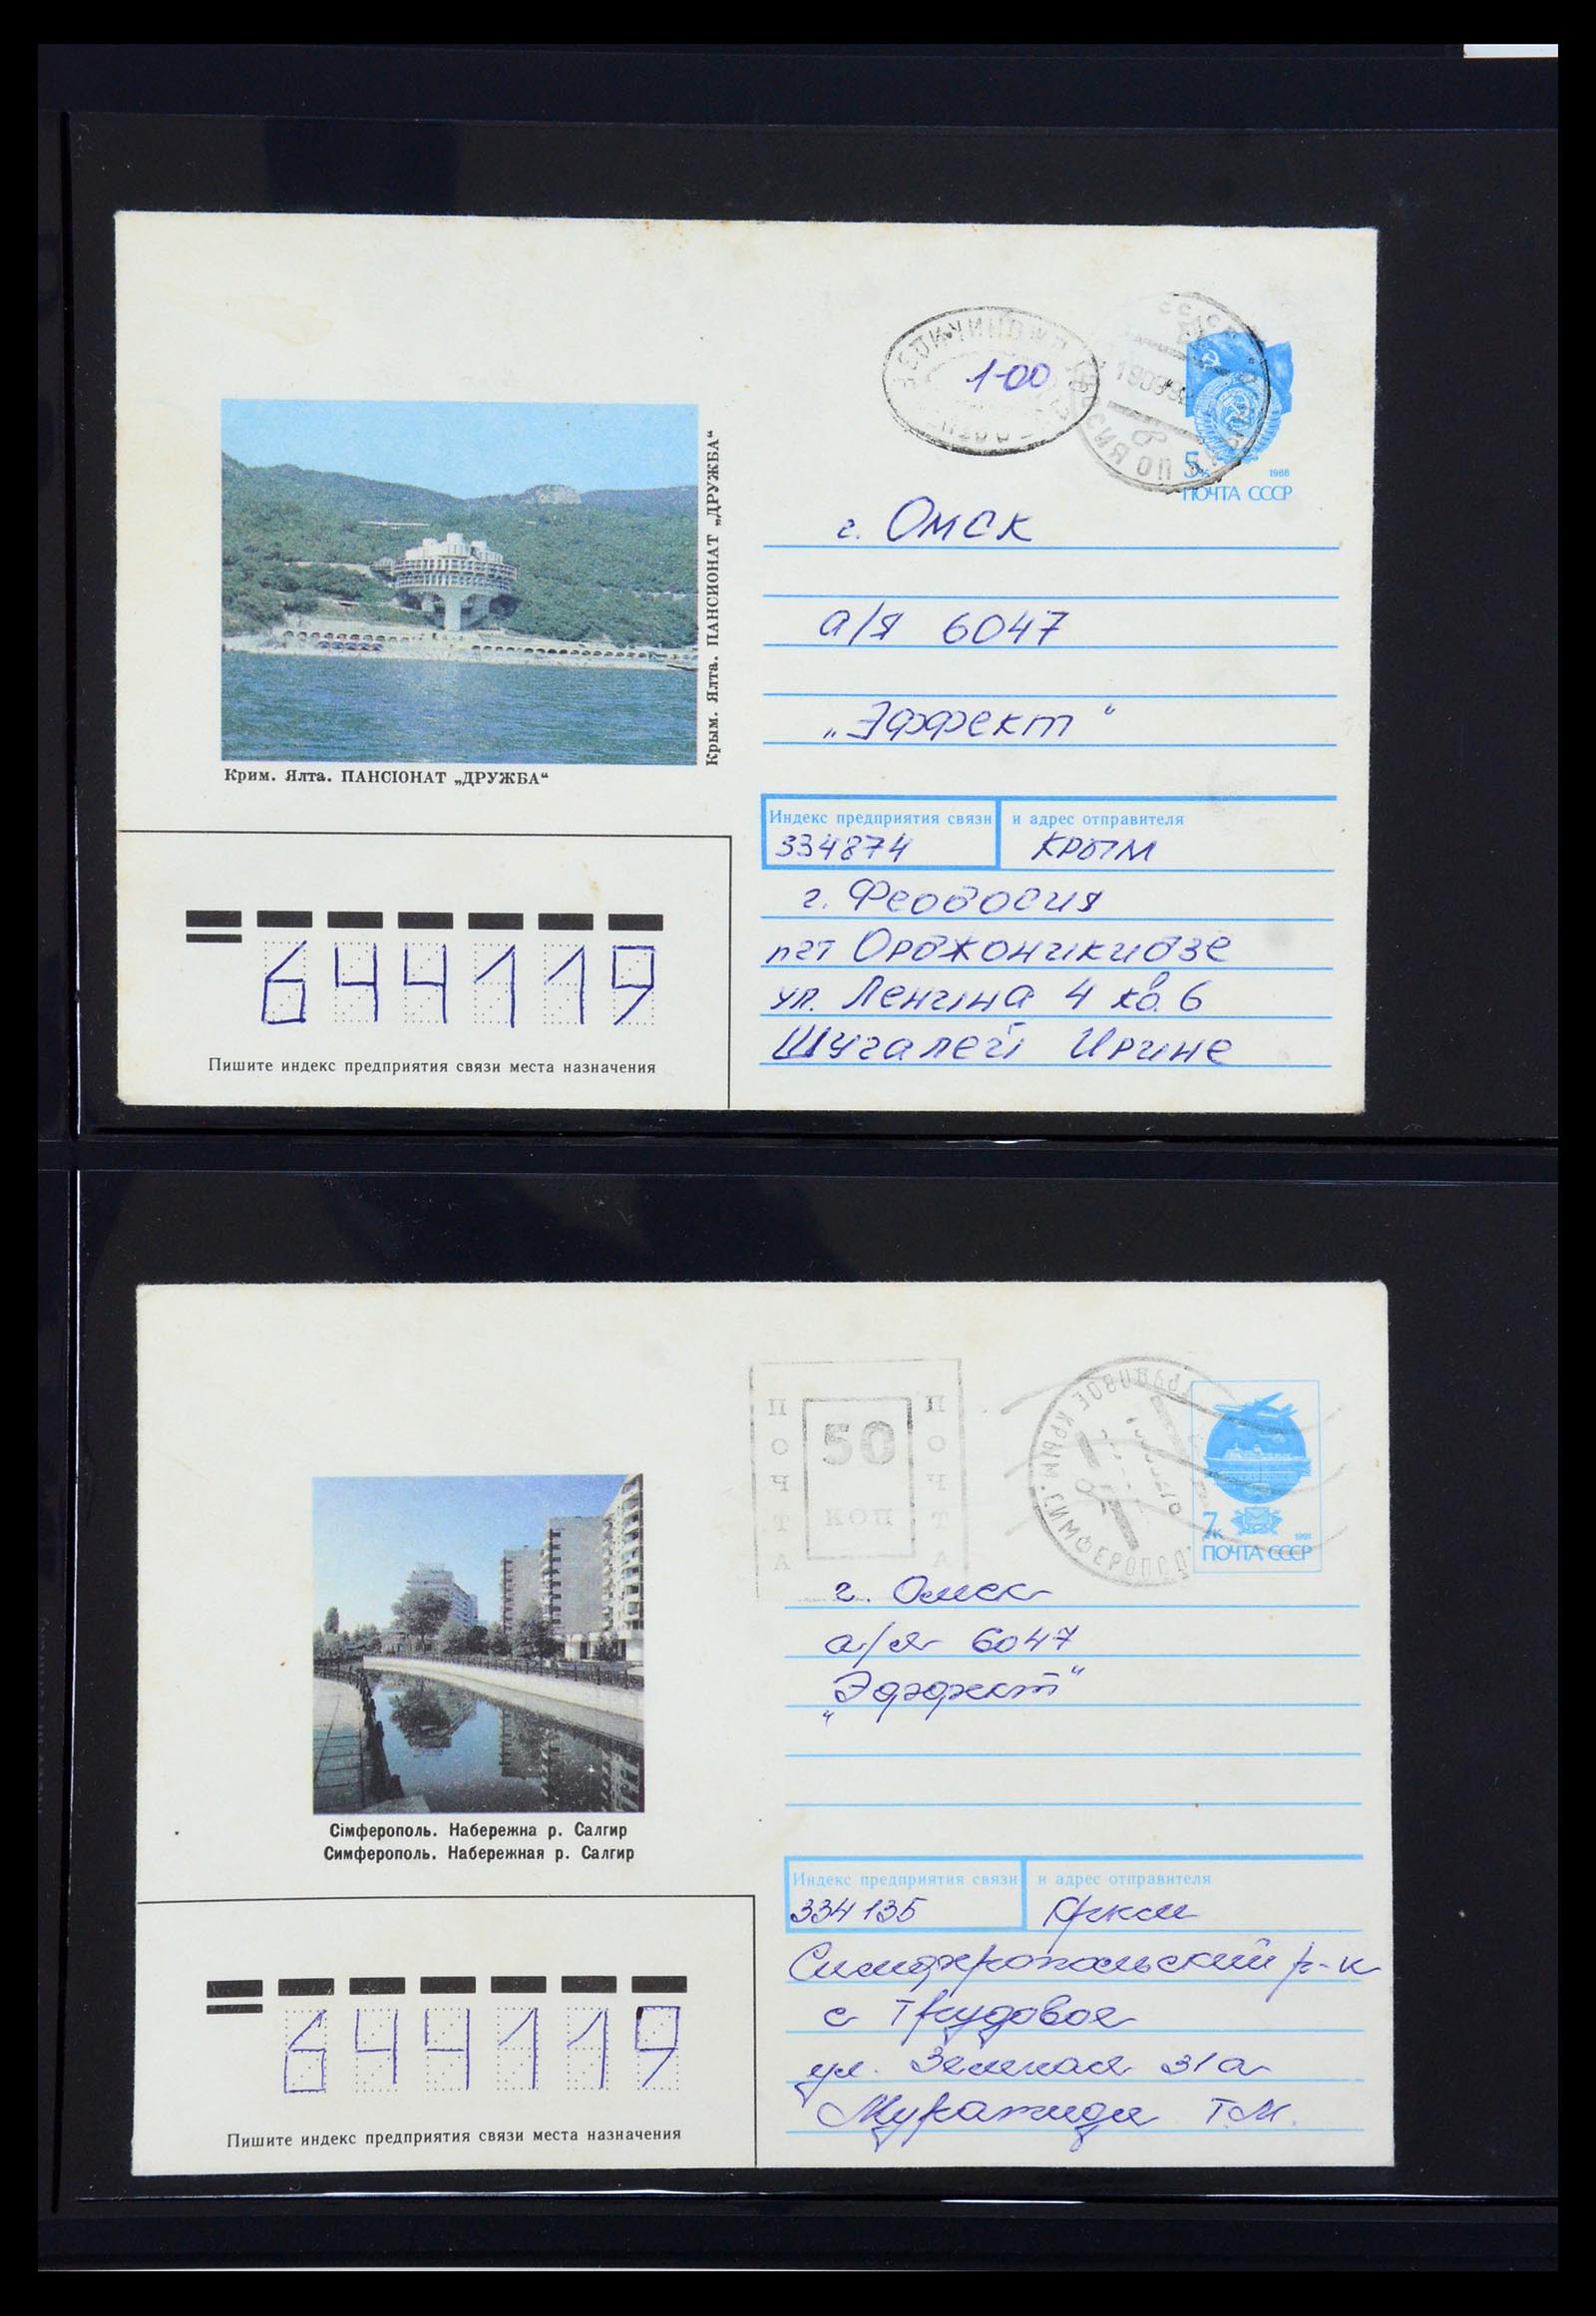 1-00
5к 1988
ПОЧТА СССР
Крым. Ялта. ПАНСИОНАТ „ДРУЖБА“
Крим. Ялта. ПАНСІОНАТ „ДРУЖБА“
г. Омск
а/я 6047
„Эффект“
Индекс предприятия связи и адрес отправителя
334874 Крым
г. Феодосия
пгт Орджоникидзе
ул. Ленина 4 кв. 6
Шугалей Ирине
644119
Пишите индекс предприятия связи места назначения
ПОЧТА 50 коп ПОЧТА
ТРУДОВОЕ КРЫМ. СИМФЕРОПОЛ.
7к 1991
ПОЧТА СССР
Сімферополь. Набережна р. Салгир
Симферополь. Набережная р. Салгир
г. Омск
а/я 6047
„Эффект“
Индекс предприятия связи и адрес отправителя
334135
Симферопольский р-н
с Трудовое
ул. Зеленая 31а
Т.М.
644119
Пишите индекс предприятия связи места назначения